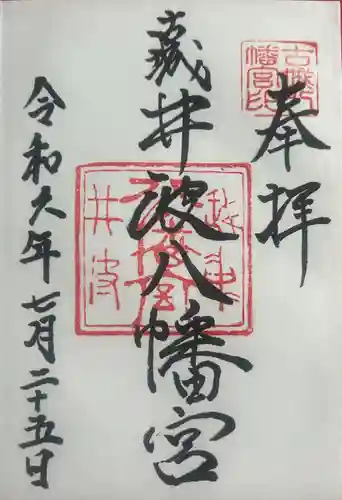 奉拝
井波八幡宮
令和六年七月二十五日
井波